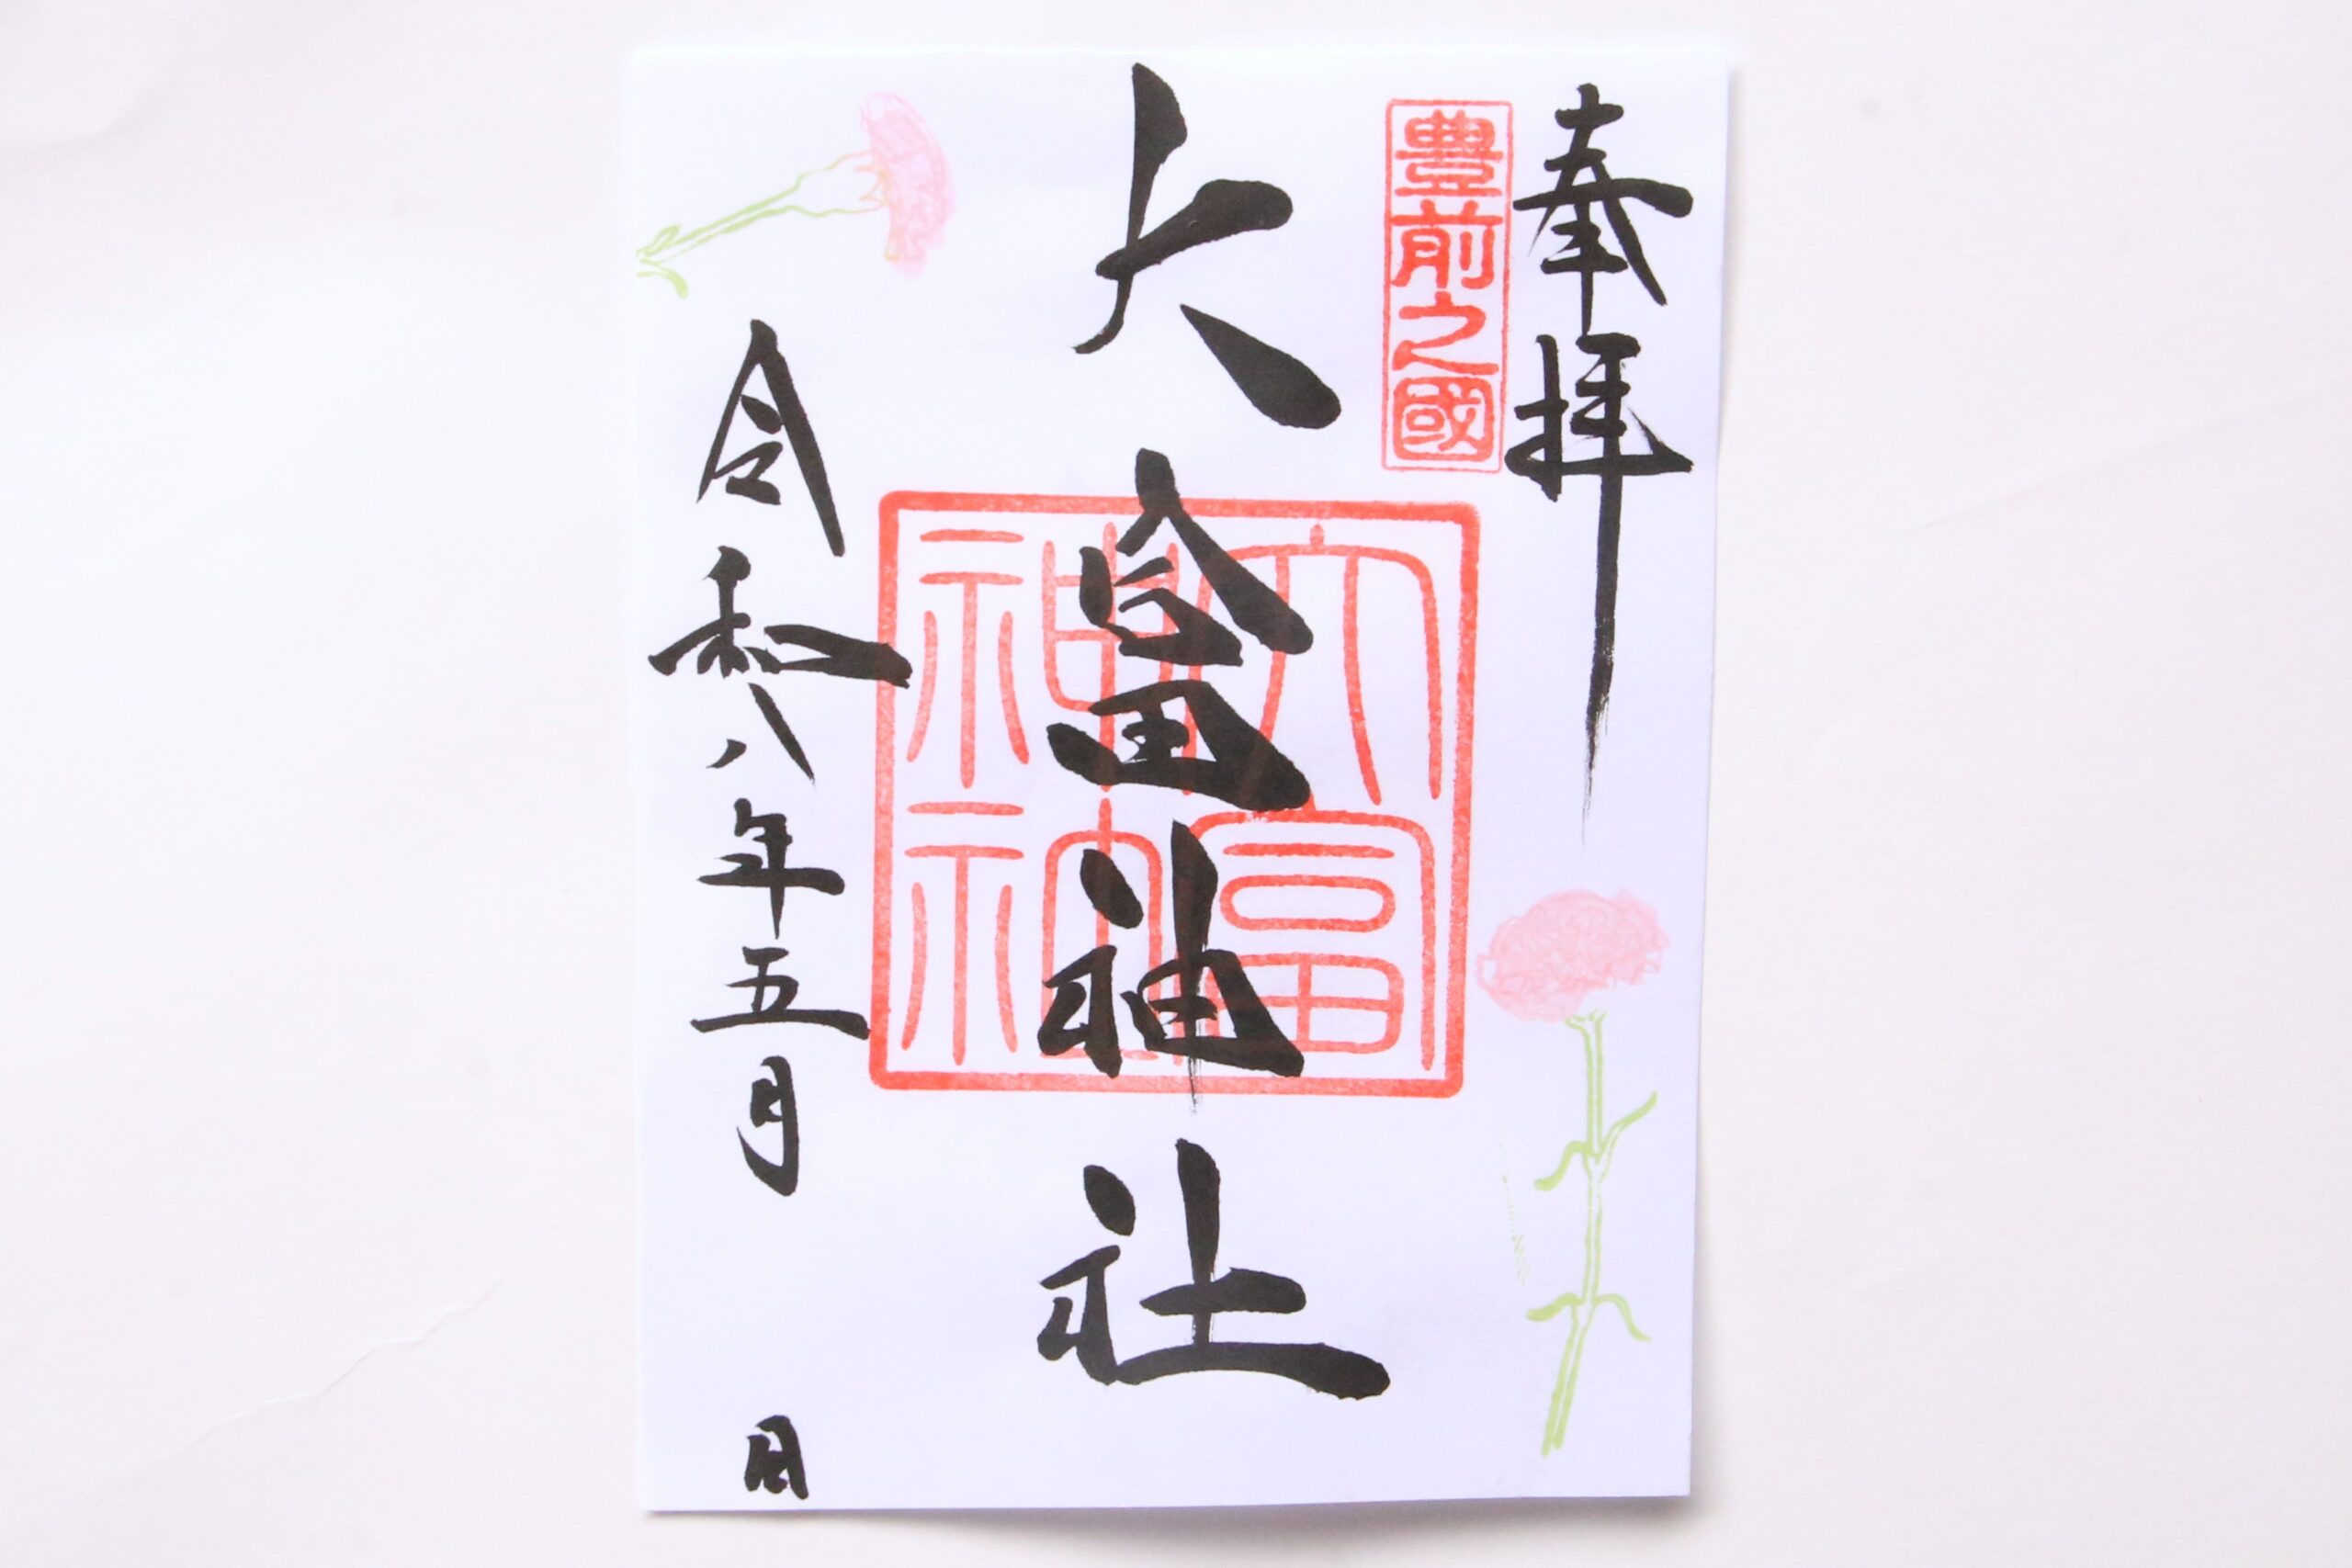 奉拝
豊前之國
大富神社
大富神社
令和八年五月 日